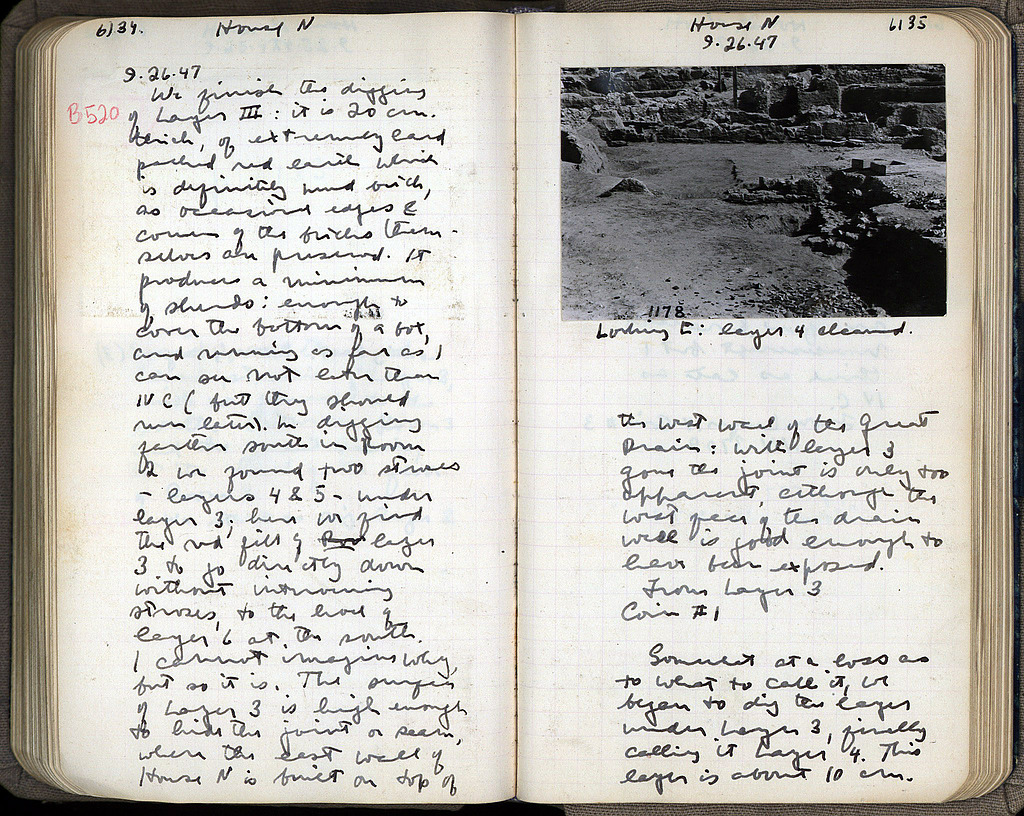 6134.
House N
9.26.47
B520
We finish the digging
of Layer III: it is 20 cm.
thick, of extremely hard
packed red earth which
is definitely mud brick,
as occasional edges &
corners of the bricks them-
selves are preserved. It
produces a minimum
of sherds: enough to
cover the bottom of a box,
and running as far as I
can see not later than
IV C (but they should
run later). In digging
farther south in Room
2 we found two stroses
- layers 4 & 5 - under
layer 3; here we find
the red fill of layer
3 to go directly down
without intervening
stroses, to the level of
layer 6 at the south.
I cannot imagine why,
but so it is. The surface
of Layer 3 is high enough
to hide the joint or seam,
where the east wall of
House N is built on top of
House N
6135
9.26.47
1178
Looking E: layer 4 cleared.
the west wall of the Great
Drain: with layer 3
gone the joint is only too
apparent, although the
west face of the drain
wall is good enough to
have been exposed.
From Layer 3
Coin #1
Somewhat at a loss as
to what to call it, we
began to dig the layer
under Layer 3, finally
calling it Layer 4. This
layer is about 10 cm.